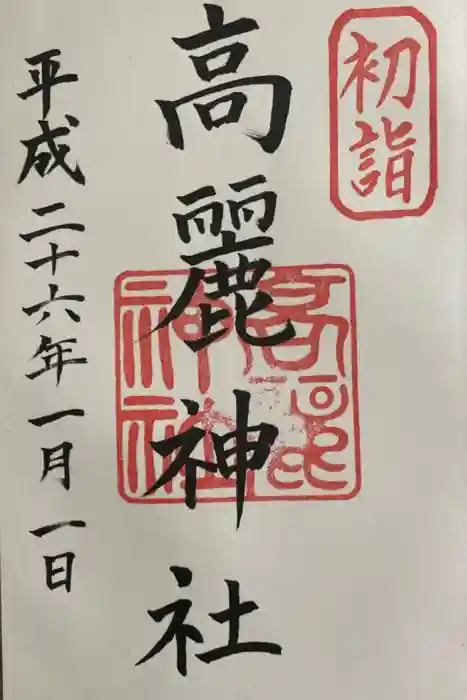 初詣
高麗神社
高麗神社
平成二十六年一月一日